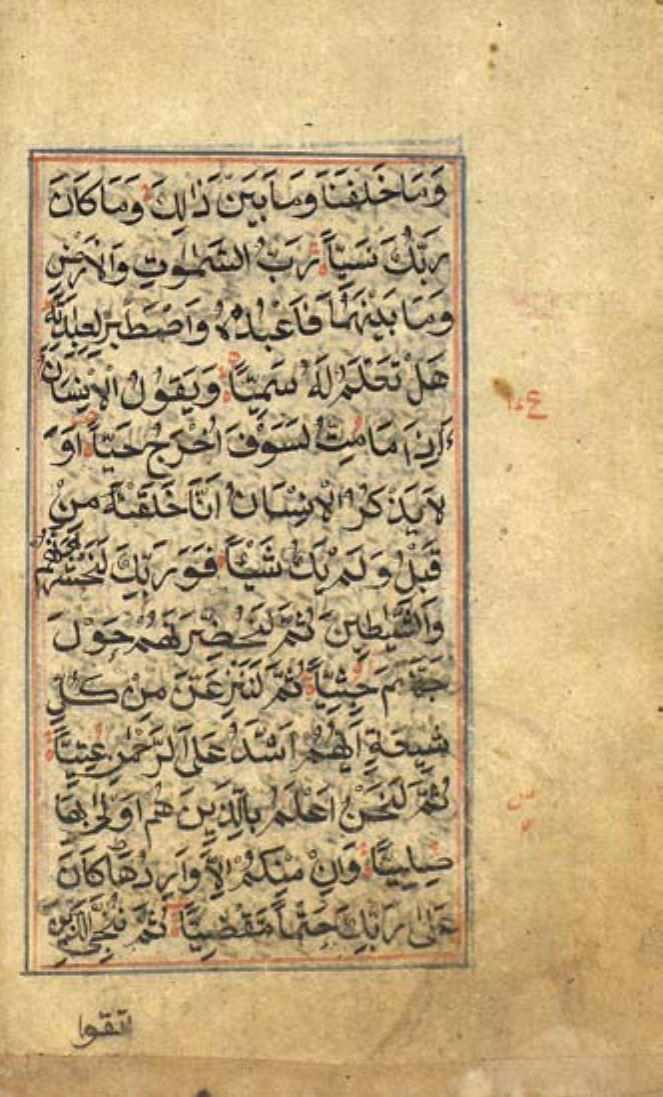 وَمَا خَلْفَنَا وَمَا بَيْنَ ذٰلِكَ وَمَا كَانَ
رَبُّكَ نَسِيًّا رَبُّ السَّمٰوٰتِ وَالْاَرْضِ
وَمَا بَيْنَهُمَا فَاعْبُدْهُ وَاصْطَبِرْ لِعِبَادَتِهٖ
هَلْ تَعْلَمُ لَهُ سَمِيًّا وَيَقُولُ الْاِنْسَانُ
ءَاِذَا مَا مِتُّ لَسَوْفَ اُخْرَجُ حَيًّا اَوَ
لَا يَذْكُرُ الْاِنْسَانُ اَنَّا خَلَقْنٰهُ مِنْ
قَبْلُ وَلَمْ يَكُ شَيْـًٔا فَوَرَبِّكَ لَنَحْشُرَنَّهُمْ
وَالشَّيٰطِينَ ثُمَّ لَنُحْضِرَنَّهُمْ حَوْلَ
جَهَنَّمَ جِثِيًّا ثُمَّ لَنَنْزِعَنَّ مِنْ كُلِّ
شِيعَةٍ اَيُّهُمْ اَشَدُّ عَلَى الرَّحْمٰنِ عِتِيًّا
ثُمَّ لَنَحْنُ اَعْلَمُ بِالَّذِينَ هُمْ اَوْلٰى بِهَا
صِلِيًّا وَاِنْ مِنْكُمْ اِلَّا وَارِدُهَا كَانَ
عَلٰى رَبِّكَ حَتْمًا مَقْضِيًّا ثُمَّ نُنَجِّي الَّذِينَ
اتقوا